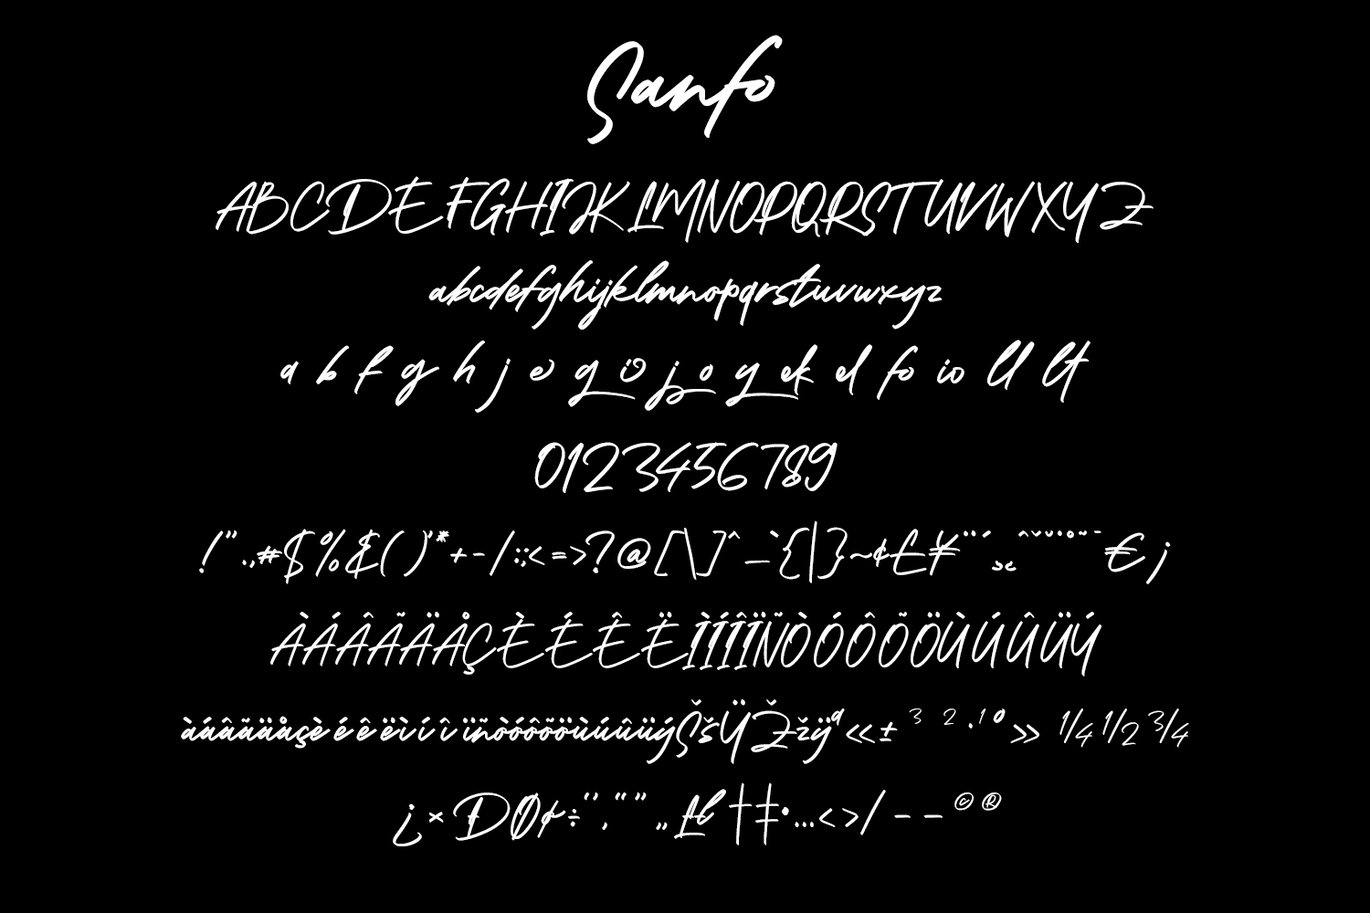 Sanfo
ABCDEFGHIJKLMNOPQRSTUVWXYZ
abcdefghijklmnopqrstuvwxyz
a b f g h j e g io j o y ek el fo io ll lt
0123456789
!".,#$%&()'*+-/:;<=>?@[\]^_`{|}~¢£¥¨´ ¸˛ ˆˇ˘˙˚˜˝¯€¡
ÀÁÂÃÄÅÇÈÉÊËÌÍÎÏÑÒÓÔÕÖÙÚÛÜÝ
àáâãäåçèéêëìíîïñòóôõöùúûüýŠšŸŽžÿª«±³²·¹º»¼½¾
¿×ÐØ¢÷‘’‚“”„Łł†‡•…‹›⁄–—©®